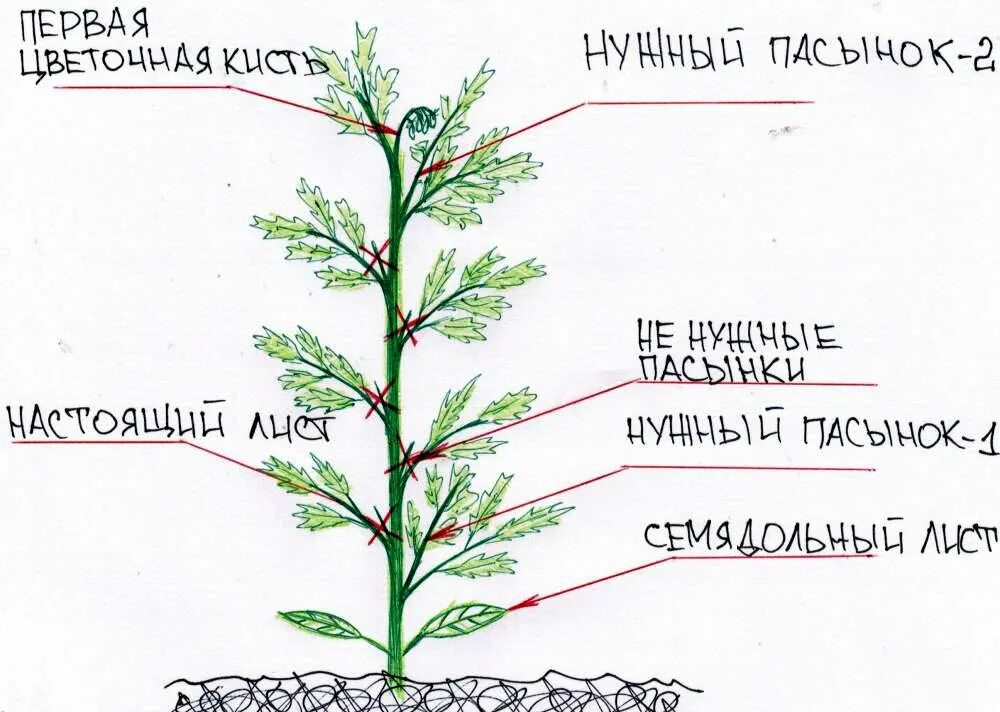 ПЕРВАЯ
ЦВЕТОЧНАЯ КИСТЬ
НУЖНЫЙ ПАСЫНОК-2
НЕ НУЖНЫЕ
ПАСЫНКИ
НАСТОЯЩИЙ ЛИСТ
НУЖНЫЙ ПАСЫНОК-1
СЕМЯДОЛЬНЫЙ ЛИСТ